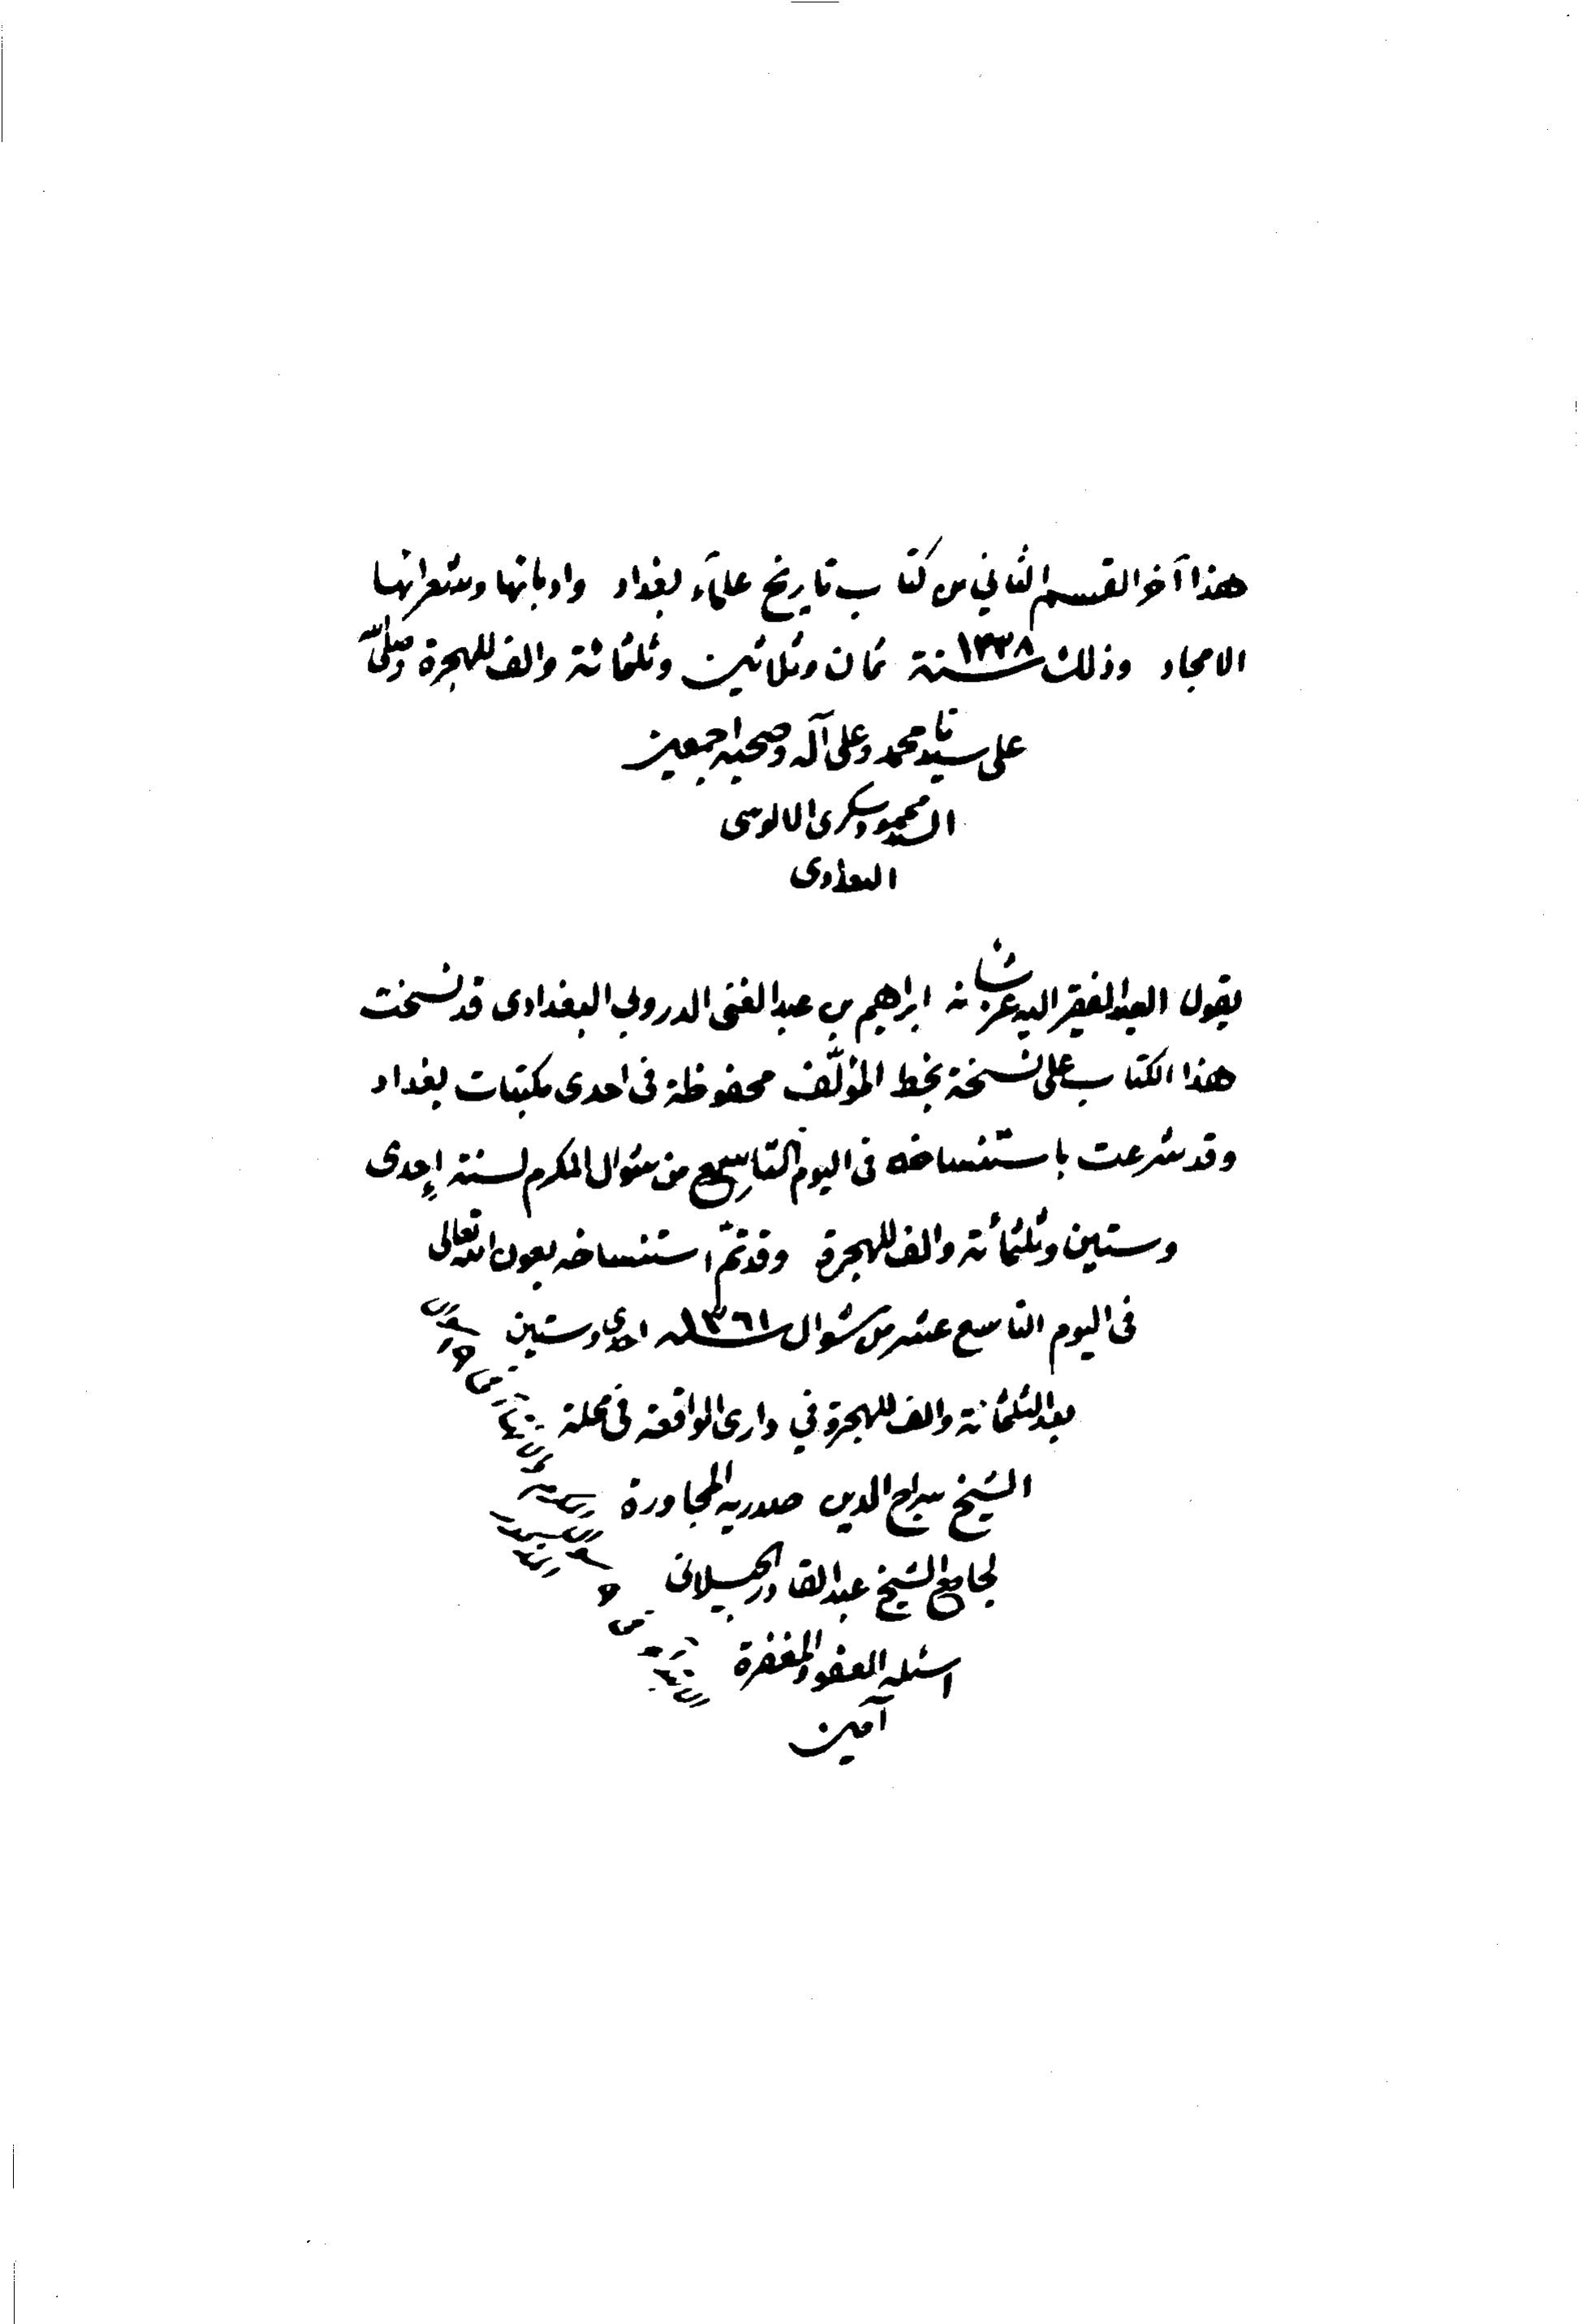 هذا آخر القسم الثاني من كتاب تاريخ علمآء بغداد وادبائها وشعرائها
الامجاد وذلك سنة ١٣٣٨ ثمان وثلاثين وثلثمائة والف للهجرة وصلى الله
على سيدنا محمد وعلى آله وصحبه اجمعين
السيد محمود شكرى الالوسى
البغدادى
يقول العبد الفقير اليه عز شانه ابراهيم بن عبد الغنى الدروبي البغدادى قد نسخت
هذا الكتاب على نسخة بخط المؤلّف محفوظة فى احدى مكتبات بغداد
وقد شرعت باستنساخه فى اليوم التاسِع من شوال المكرم لسنة إحدى
وستين وثلثمائة والف للهجرة وقد تمّ استنساخه بعون الله تعالى
فى اليوم التاسع عشر من شوال سنة ١٣٦١ احدى وستين
بعد الثلثمائة والف للهجرة في دارى الواقعة فى محلة
الشيخ سراج الدين صدريه المجاورة
لجامع الشيخ عبد القادر الجيلانى
اسئله العفو والمغفرة
آمين